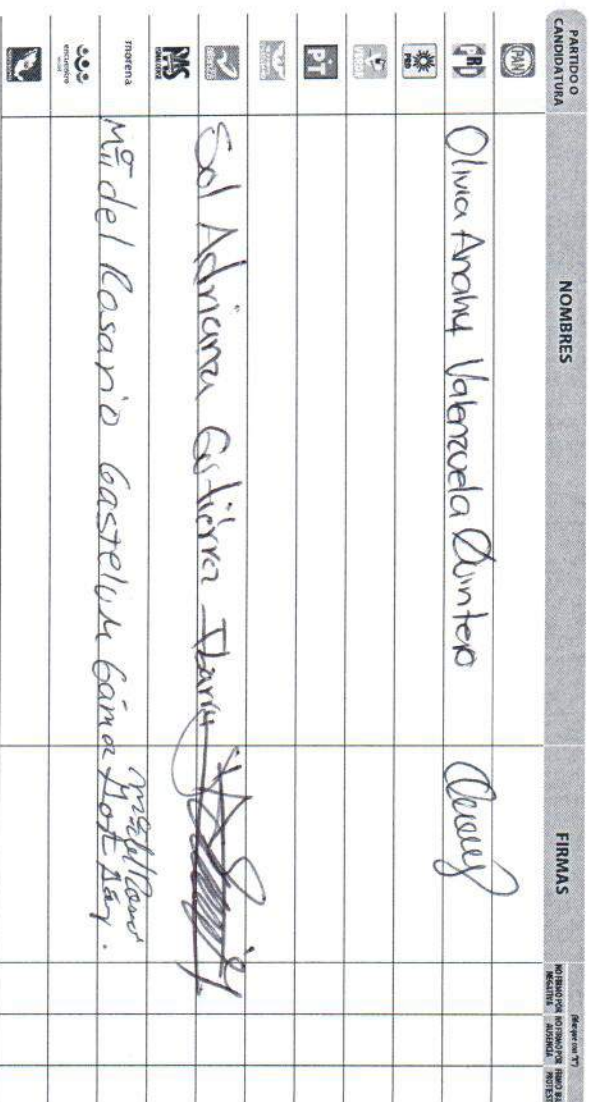 PARTIDO O CANDIDATURA NOMBRES FIRMAS (Marque con "X")
NO FIRMÓ POR NEGATIVA NO FIRMÓ POR AUSENCIA FIRMÓ BAJO
PAN
PRI Olivia Anahy Valenzuela Quintero
PRD
VERDE
PT
Sol Adriana Gutiérrez Ibarra
PAS
morena Mª del Rosario Gastelum Gámez
encuentro